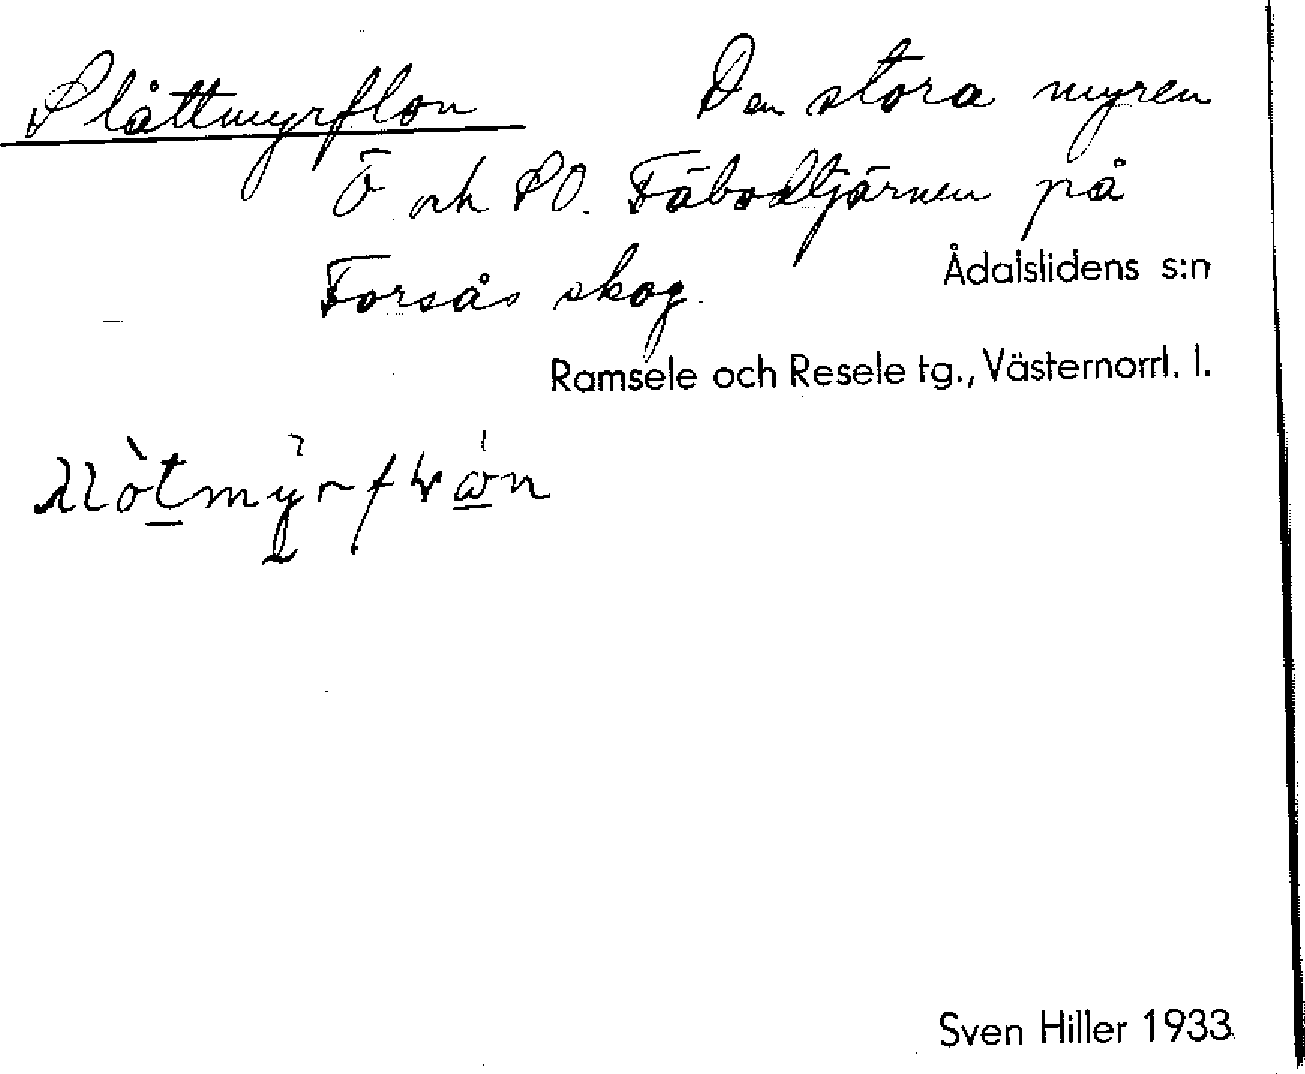 Slåttmyrflon Den stora myren
Ö och SO. Fäbodtjärnen på
Forsås skog.
Ådalslidens s:n
Ramsele och Resele tg., Västernorrl. l.
Sven Hiller 1933